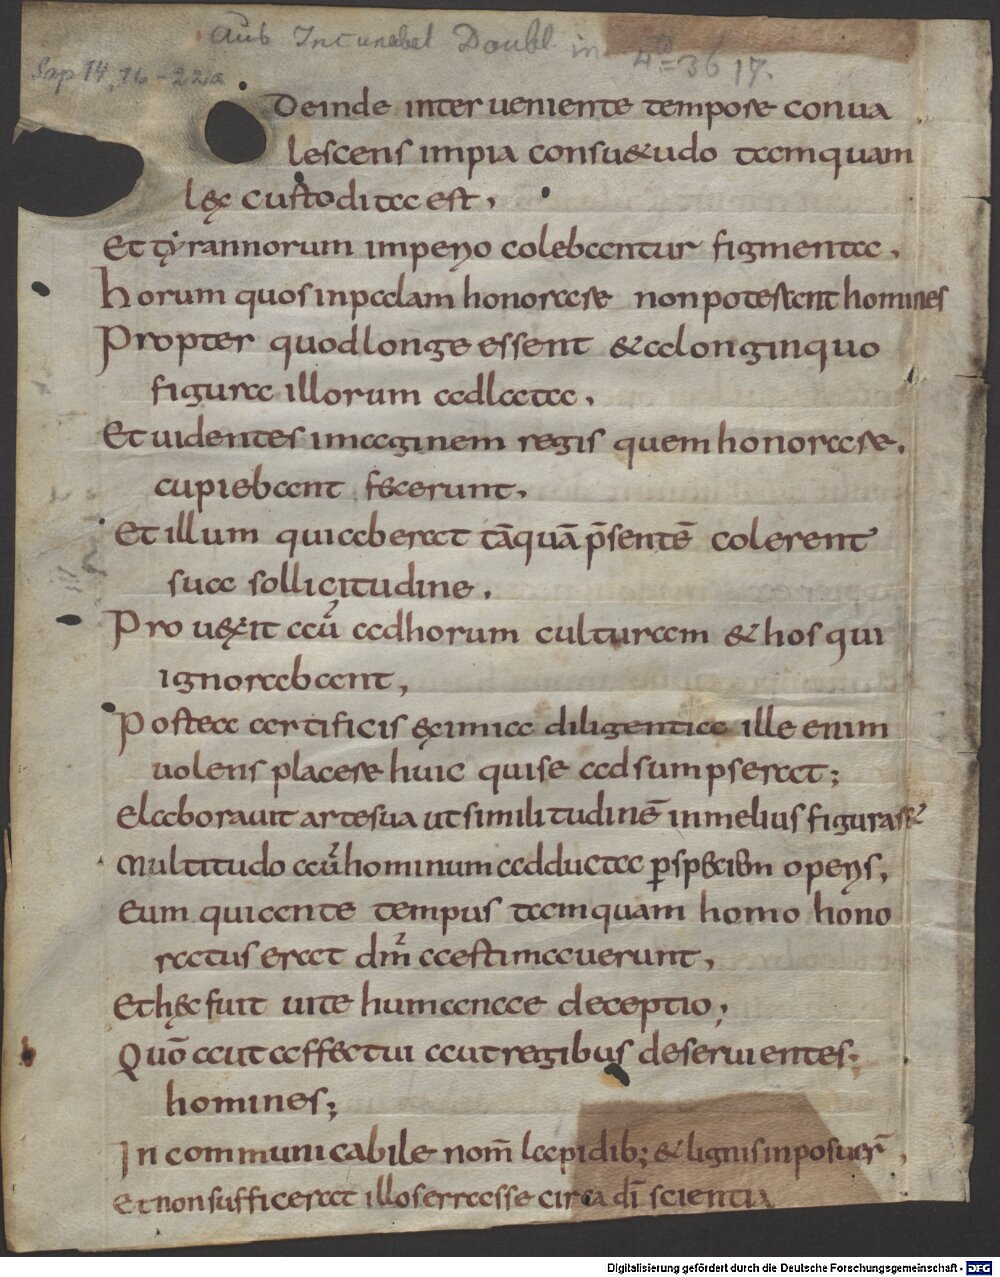 aus Incunabel Doubl in 4to = 3617.
Sap 14, 16-22a
Deinde interueniente tempore conua
lescens impia consu&udo tamquam
lęx custodita est,
Et tyrannorum imperio colebantur figmenta,
horum quos inpalam honorare non poterant homines
Propter quod longe essent & alonginquo
figura illorum adlata,
Et uidentes imaginem regis quem honorare,
cupiebant fecerunt,
Et illum qui aberat tāquā p̄sentē colerent
sua sollicitudine,
Prouęxit aū ad horum culturam & hos qui
ignorabant,
Postea artificis ęximia diligentia ille enim
uolens placere huic qui se adsumpserat;
Elaborauit arte sua ut similitudinē in melius figurar&
Multitudo aū hominum adducta p̱ speciem operis,
Eum qui ante tempus tamquam homo hono
ratus erat dm̄ aestimauerunt,
Et hęc fuit uite humanae deceptio;
Quō aut affectui aut regibus deseruientes;
homines;
In communicabile nom̄ lapidib; & lignis inposuer̄,
Et non sufficerat illos errasse circa dī scientia
Digitalisierung gefördert durch die Deutsche Forschungsgemeinschaft - DFG